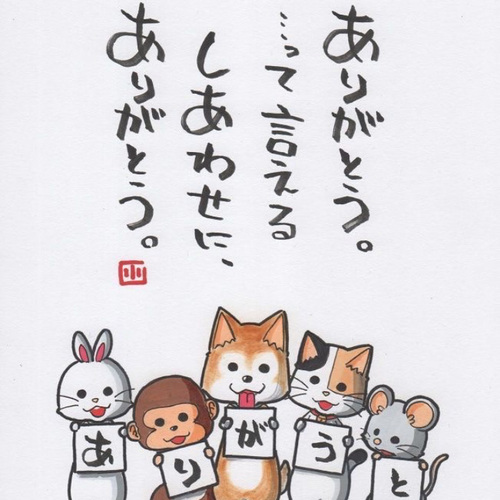 ありがとう。
…って言える
しあわせに、
ありがとう。
あ
り
が
う
と